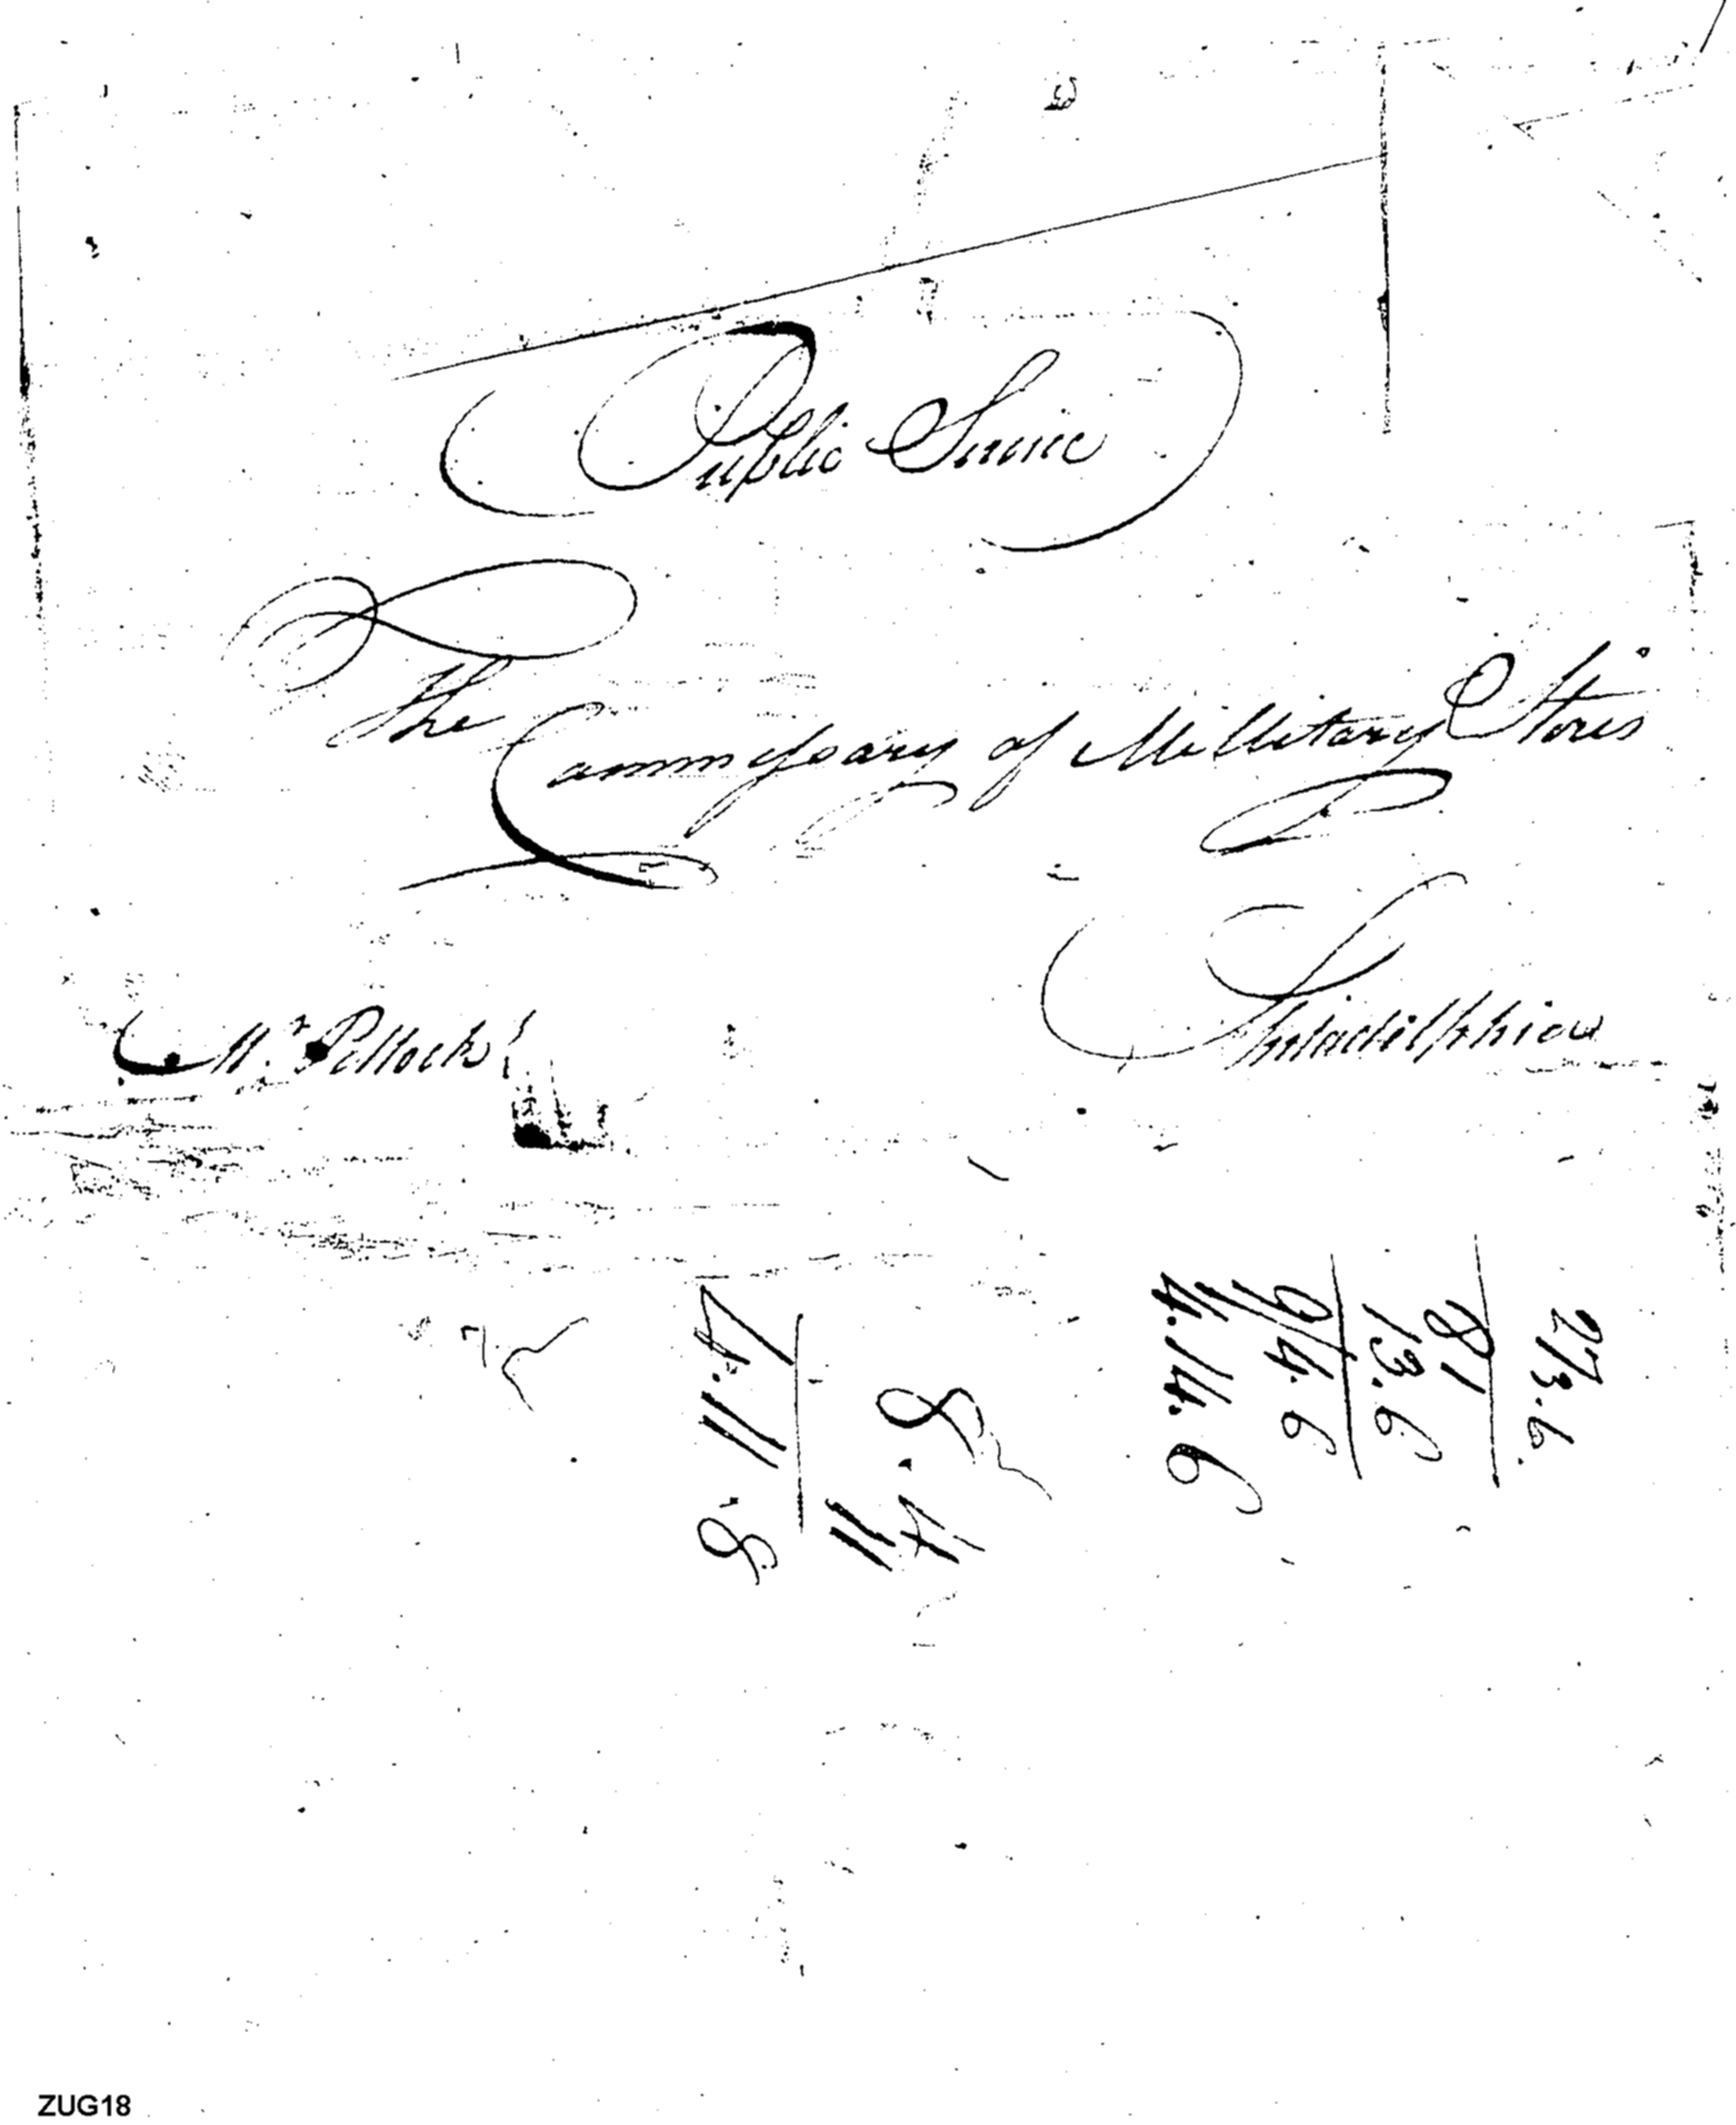 Public Service
The Commissary of Millitary Stores
Philadelphia
Mr. Pollock
273.6.
81
13.6
9/4.6
4.14.6
8.
11
8.
ZUG18